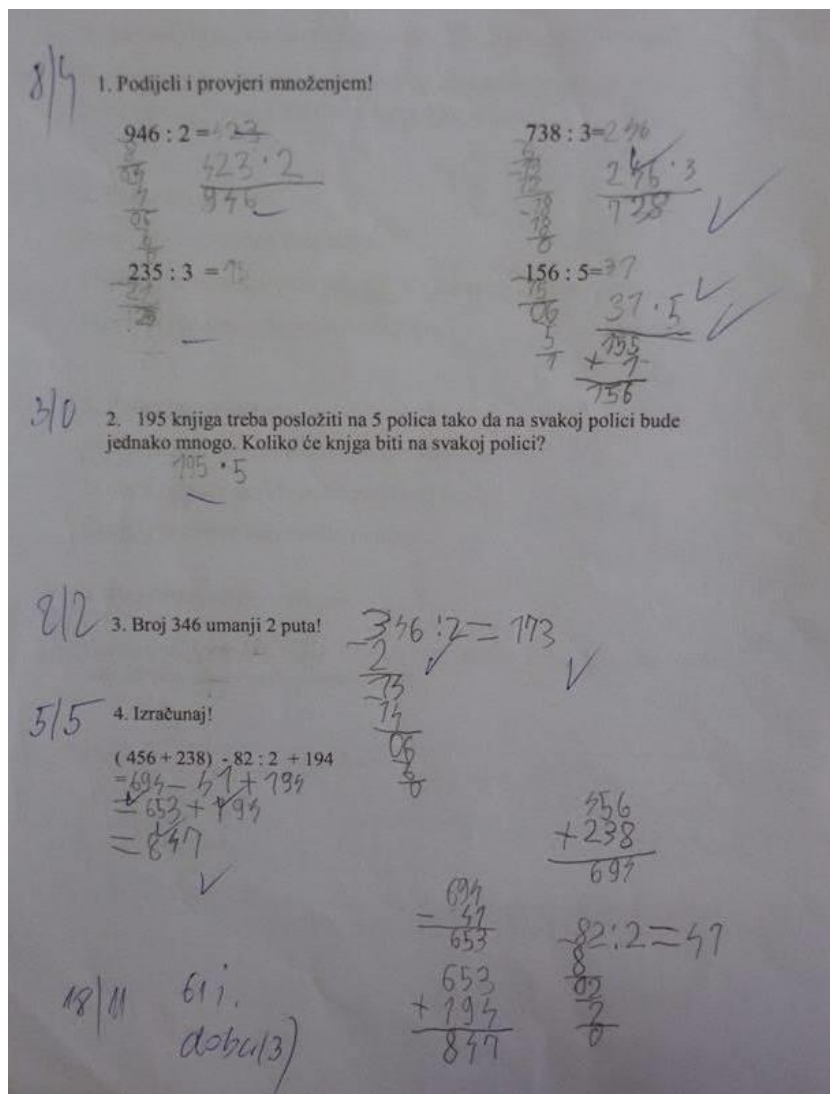 8/4
1. Podijeli i provjeri množenjem!
946 : 2 = 423
8
423 · 2
946
738 : 3= 246
246 · 3
738
235 : 3 =
- 21
156 : 5= 31
15
06
5
1
31 · 5
155
+ 1
156
3/0
2. 195 knjiga treba posložiti na 5 polica tako da na svakoj polici bude
jednako mnogo. Koliko će knjga biti na svakoj polici?
195 · 5
2/2
3. Broj 346 umanji 2 puta!
346 : 2 = 173
- 2
- 14
06
6
0
5/5
4. Izračunaj!
( 456 + 238) - 82 : 2 + 194
= 694 - 41 + 194
= 653 + 194
= 847
456
+ 238
694
694
- 41
653
82 : 2 = 41
8
02
2
0
653
+ 194
847
18/11
dobar(3)